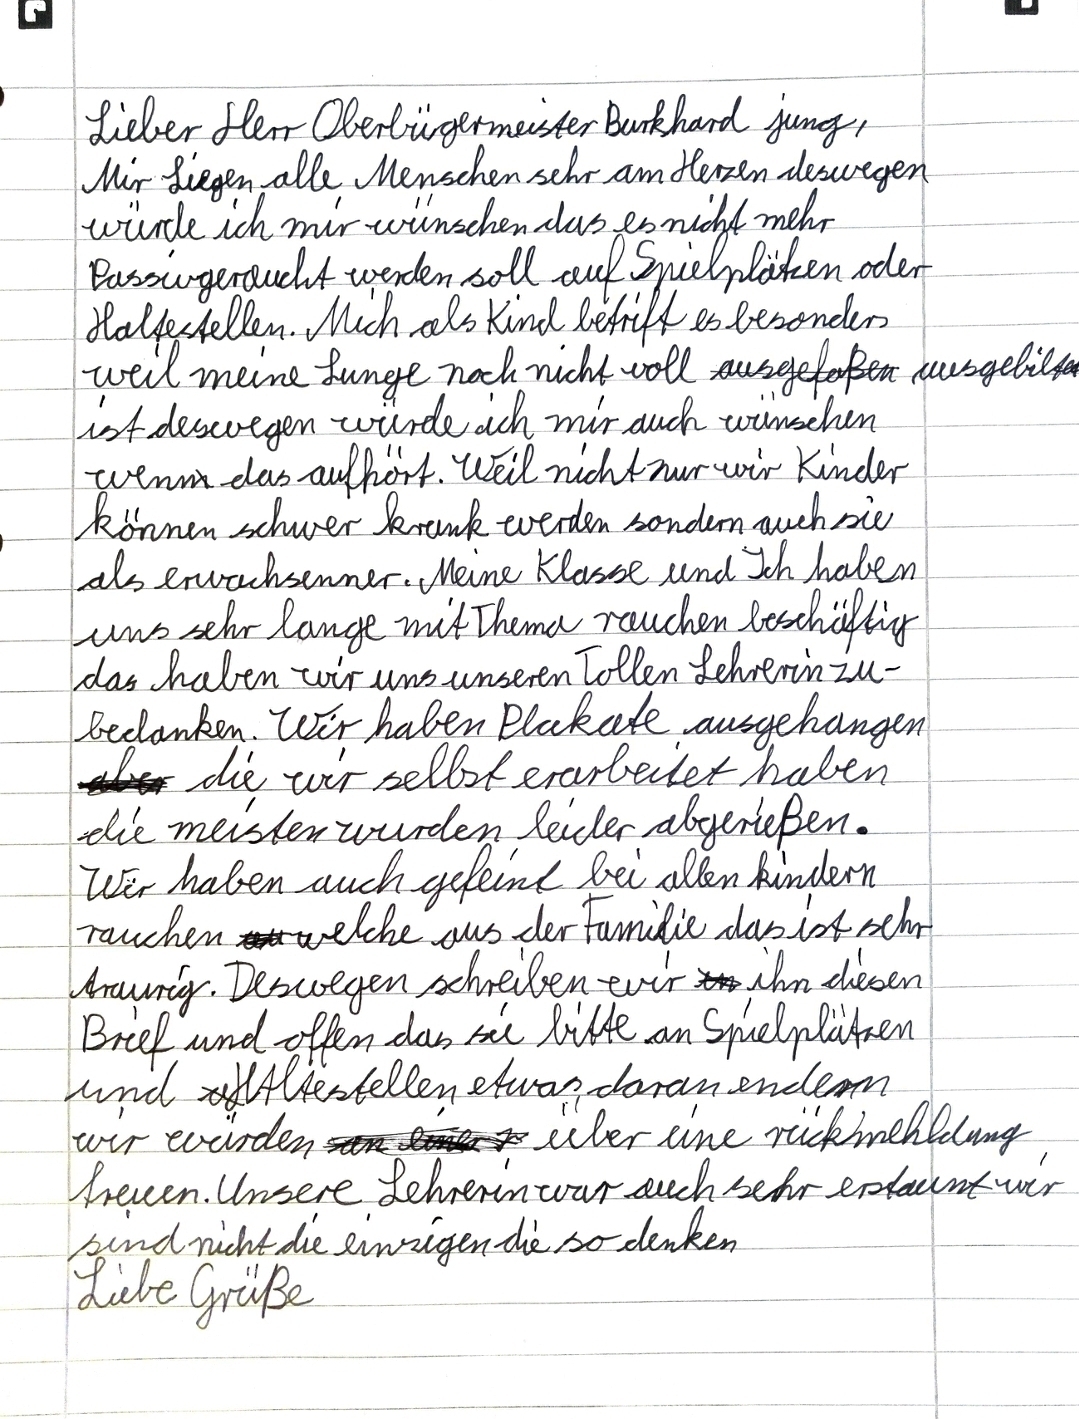 Lieber Herr Oberbürgermeister Burkhard jung,
Mir Liegen alle Menschen sehr am Herzen deswegen
würde ich mir wünschen das es nicht mehr
Passivgeraucht werden soll auf Spielplätzen oder
Haltestellen. Mich als Kind betrift es besonders
weil meine Lunge noch nicht voll ausgebilten
ist deswegen würde ich mir auch wünschen
wenn das aufhört. Weil nicht nur wir Kinder
können schwer krank werden sondern auch sie
als erwachsenner. Meine Klasse und Ich haben
uns sehr lange mit Thema rauchen beschäftig
das haben wir uns unseren Tollen Lehrerin zu-
bedanken. Wir haben Plakate ausgehangen
die wir selbst erarbeitet haben
die meisten wurden leider abgerießen.
Wir haben auch gefeint bei allen kindern
rauchen welche aus der Familie das ist sehr
traurig. Deswegen schreiben wir ihn diesen
Brief und offen das sie bitte an Spielplätzen
und etwas daran endern
wir würden über eine rückmehldung
freuen. Unsere Lehrerin war auch sehr erstaunt wir
sind nicht die einzigen die so denken
Liebe Grüße